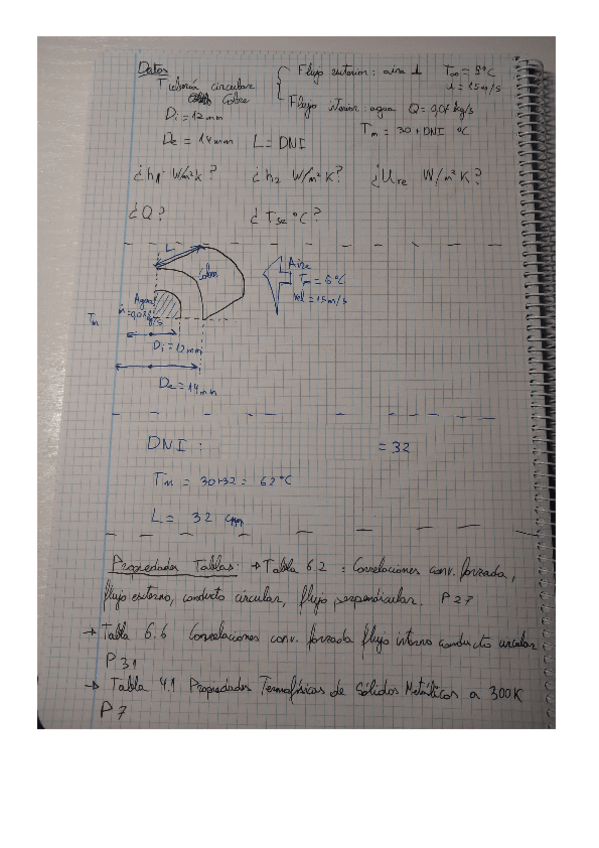 Datos
Tubería circular
Cobre
Di = 12mm
De = 14mm L = DNI
Flujo exterior: aire ⊥ T∞ = 5°C
u = 15m/s
Flujo interior agua Q = 0,08 kg/s
Tm = 30 + DNI °C
¿h1 W/m²K? ¿h2 W/m²K? ¿Ure W/m²K?
¿Q? ¿Tse °C?
L
Cobre
Aire
T∞ = 5°C
vel = 15m/s
Agua
Tm
Di = 12mm
De = 14mm
DNI: = 32
Tm = 30+32 = 62°C
L = 32 cm
Propiedades Tablas: → Tabla 6.2 : Correlaciones conv. forzada,
flujo externo, conducto circular, flujo perpendicular. P27
→ Tabla 6.6 Correlaciones conv. forzada flujo interno conducto circular
P31
→ Tabla 4.1 Propiedades Termofísicas de Sólidos Metálicos a 300K
P7